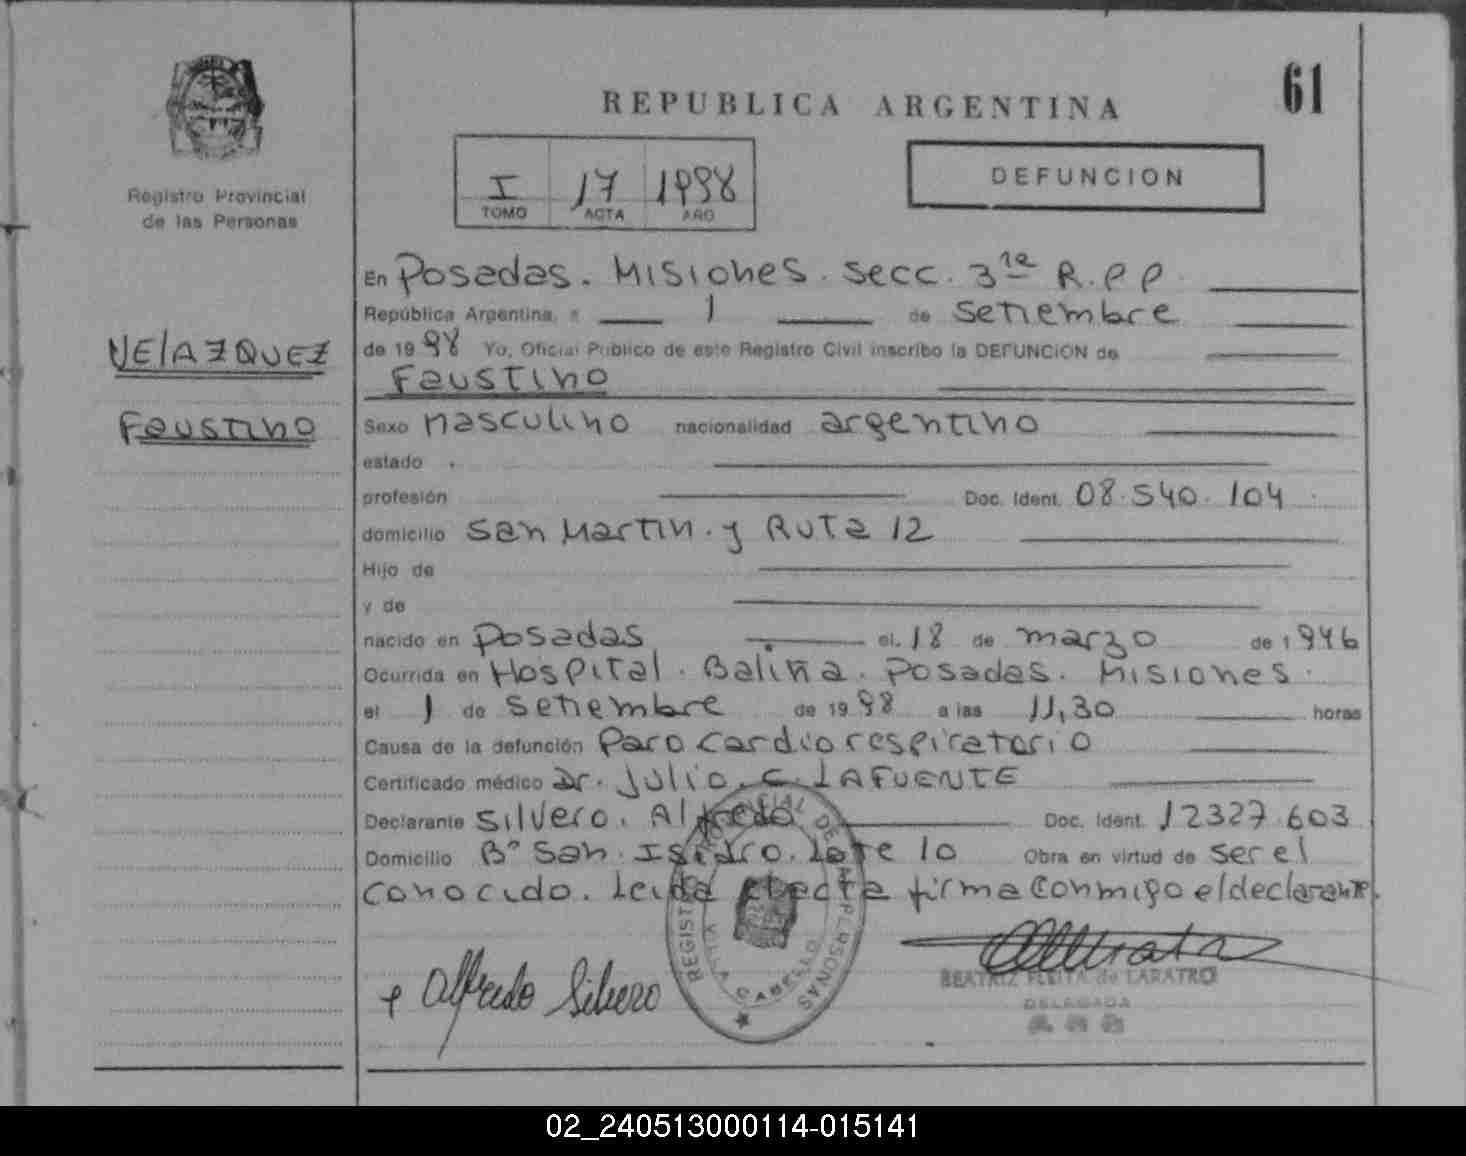 REPUBLICA ARGENTINA
61
Registro Provincial
de las Personas
I 17 1998
TOMO ACTA AÑO
DEFUNCION
VElAZQUEZ
Faustino
En Posadas. Misiones. secc. 3ra R.P.P.
República Argentina, a 1 de setiembre
de 1998 Yo, Oficial Público de este Registro Civil inscribo la DEFUNCION de
Faustino
Sexo masculino nacionalidad argentino
estado
profesión Doc. Ident. 08.540.104
domicilio San Martin. y Ruta 12
Hijo de
y de
nacido en Posadas el. 18 de marzo de 1946
Ocurrida en Hospital. Baliña. Posadas. Misiones.
el 1 de setiembre de 1998 a las 11,30 horas
Causa de la defunción Paro cardio respiratorio
Certificado médico Dr. Julio. C. LAFUENTE
Declarante Silvero. Alfredo Doc. Ident. 12327.603
Domicilio Bº San. Isidro. lote 10 Obra en virtud de ser el
conocido. Leida el acta firma conmigo el declarante.
Alfredo Silvero
REGISTRO PROVINCIAL DE LAS PERSONAS
CABELLO
BEATRIZ FLEITA de LARATRO
DELEGADA
02_240513000114-015141